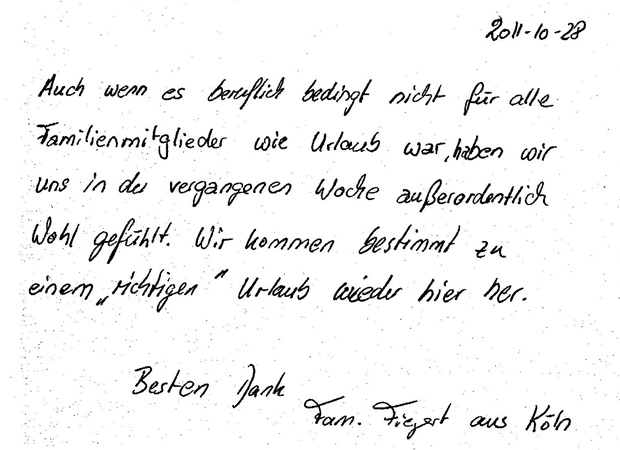 2011-10-28
Auch wenn es beruflich bedingt nicht für alle
Familienmitglieder wie Urlaub war, haben wir
uns in der vergangenen Woche außerordentlich
Wohl gefühlt. Wir kommen bestimmt zu
einem „richtigen“ Urlaub wieder hier her.
Besten Dank
Fam. Fiegert aus Köln